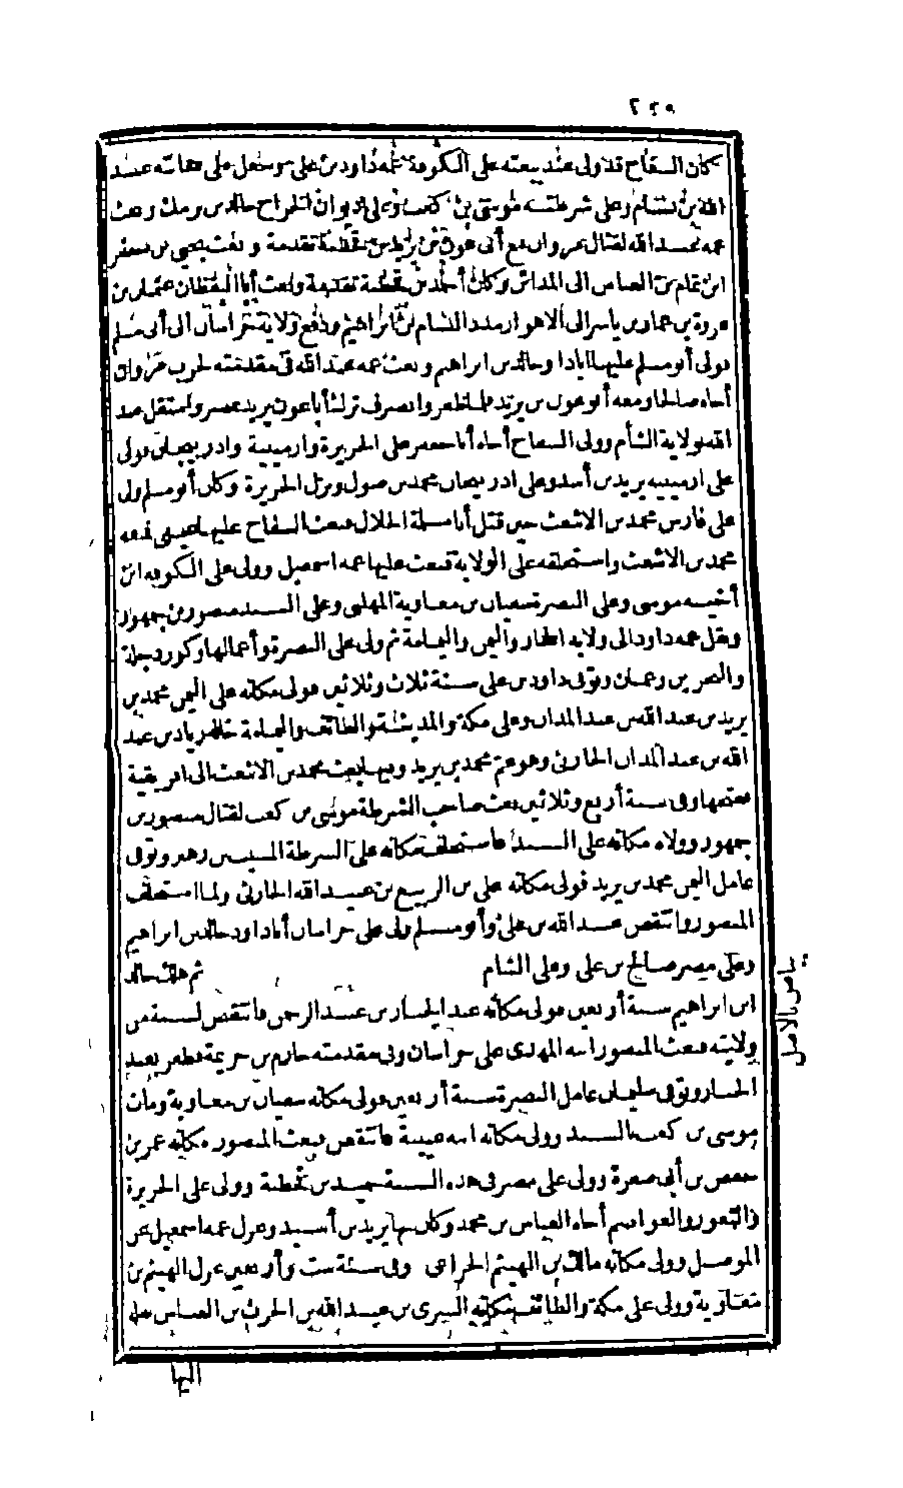 ٢٥٩
كان السفاح قد ولى عند بيعته على الكوفة عمه داود بن على وجعل على حجابته عبد
الله بن بسام وعلى شرطته موسى بن كعب وعلى ديوان الخراج خالد بن برمك وبعث
عمه عبد الله لقتال مروان مع أبى عون بن يزيد بن قحطبة تقدمة وبعث يحيى بن جعفر
ابن تمام بن العباس الى المدائن وكان أحمد بن قحطبة تقدمة وبعث أبا اليقظان عثمان بن
عروة بن عمار بن ياسر الى الاهواز مدد البسام بن ابراهيم ودفع ولاية خراسان الى أبى مسلم
فولى أبو مسلم عليها ايادا وخالد بن ابراهيم وبعث عمه عبد الله فى مقدمته لحرب مروان
أخاه صالحا ومعه أبو عون بن يزيد فلما ظفر وانصرف ترك أبا عون يزيد بمصر واستقل عبد
الله بولاية الشأم وولى السفاح أخاه أبا جعفر على الجزيرة وارمينية واذربيجان فولى
على ارمينية يزيد بن أسد وعلى اذربيجان محمد بن صول ونزل الجزيرة وكان أبو مسلم ولى
على فارس محمد بن الاشعث حين قتل أبا سلمة الخلال فبعث السفاح عليها عيسى فمنعه
محمد بن الاشعث واستحلفه على الولاية فبعث عليها عمه اسمعيل وولى على الكوفة ابن
أخيه موسى وعلى البصرة سفيان بن معاوية المهلبى وعلى السند منصور بن جمهور
ونقل عمه داود الى ولاية الحجاز واليمن واليمامة ثم ولى على البصرة وأعمالها وكور دجلة
والبحرين وعمان وتوفى داود بن على سنة ثلاث وثلاثين فولى مكانه على اليمن محمد بن
يزيد بن عبد الله بن عبد المدان وعلى مكة والمدينة والطائف واليمامة خاله زياد بن عبد
الله بن عبد المدان الحارثى وهو عم محمد بن يزيد وفيها بعث محمد بن الاشعث الى افريقية
ففتحها وفى سنة أربع وثلاثين بعث صاحب الشرطة موسى بن كعب لقتال منصور بن
جمهور وولاه مكانه على السند فاستخلف مكانه على الشرطة المسيب بن زهير وتوفى
عامل اليمن محمد بن يزيد فولى مكانه على بن الربيع بن عبيد الله الحارثى ولما استخلف
المنصور وانتقض عبد الله بن على وأبو مسلم ولى على خراسان أبا داود خالد بن ابراهيم
وعلى مصر صالح بن على وعلى الشام ثم هلك خالد
ابن ابراهيم سنة أربعين فولى مكانه عبد الجبار بن عبد الرحمن فانتقض لسنة من
ولايته فبعث المنصور ابنه المهدى على خراسان وفى مقدمته خازم بن خزيمة فظفر بعبد
الجبار وتوفى سليمان عامل البصرة سنة أربعين فولى مكانه سفيان بن معاوية ومات
موسى بن كعب بالسند وولى مكانه ابنه عيينة فانتقض فبعث المنصور مكانه عمر بن
حفص بن أبى صفرة وولى على مصر فى هذه السنة حميد بن قحطبة وولى على الجزيرة
والثغور والعواصم أخاه العباس بن محمد وكان بها يزيد بن أسيد وعزل عمه اسمعيل عن
الموصل وولى مكانه مالك بن الهيثم الخزاعى وفى سنة ست وأربعين عزل الهيثم بن
معاوية وولى على مكة والطائف مكانه السرى بن عبد الله بن الحرث بن العباس نقله
اليها
بياض بالاصل